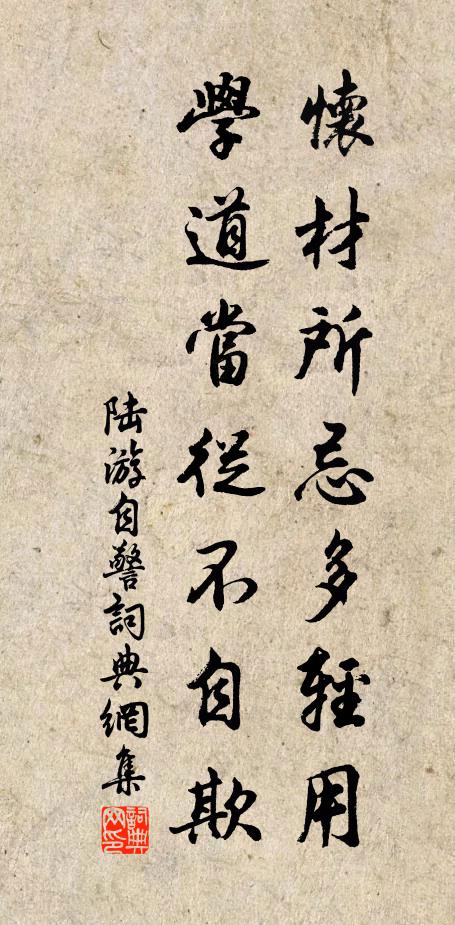 懷材所忌多輕用
學道當從不自欺
陆游自警詞典網集
詞典網印